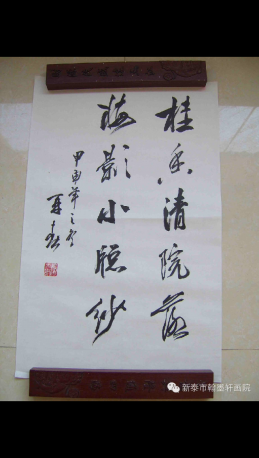 桂香清院落
梅影小窗纱
甲申年之冬
新泰市翰墨轩画院